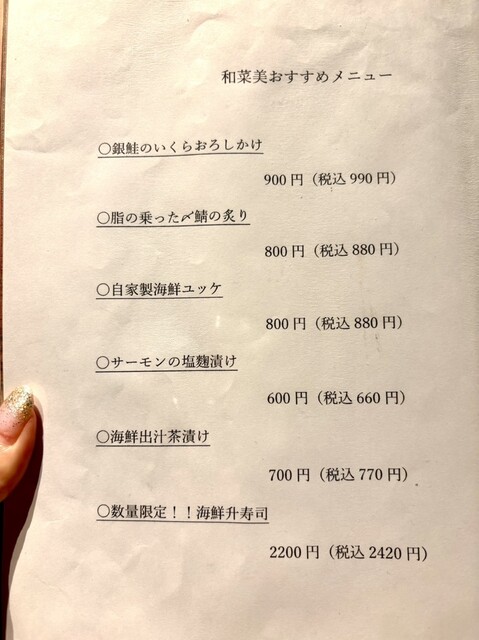 和菜美おすすめメニュー
〇銀鮭のいくらおろしかけ
900円（税込990円）
〇脂の乗った〆鯖の炙り
800円（税込880円）
〇自家製海鮮ユッケ
800円（税込880円）
〇サーモンの塩麹漬け
600円（税込660円）
〇海鮮出汁茶漬け
700円（税込770円）
〇数量限定！！海鮮升寿司
2200円（税込2420円）